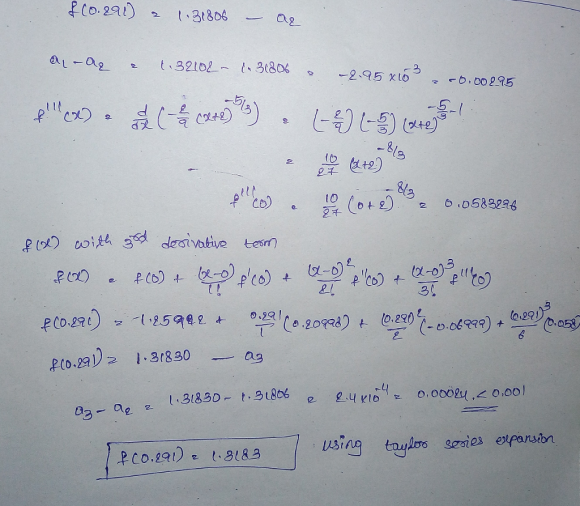 f(0.291) = 1.31806 — a2
a1 - a2 = 1.32102 - 1.31806 = -2.95 x10^-3 = -0.00295
f'''(x) = d/dx (-2/9 (x+2)^-5/3) = (-2/9) (-5/3) (x+2)^-5/3-1
= 10/27 (x+2)^-8/3
f'''(0) = 10/27 (0+2)^-8/3 = 0.0583296
f(x) with 3rd derivative term
f(x) = f(0) + (x-0)/1! f'(0) + (x-0)^2/2! f''(0) + (x-0)^3/3! f'''(0)
f(0.291) = 1.25992 + 0.291/1 (0.20998) + (0.291)^2/2 (-0.06999) + (0.291)^3/6 (0.058
f(0.291) = 1.31830 — a3
a3 - a2 = 1.31830 - 1.31806 = 2.4 x10^-4 = 0.00024 < 0.001
f(0.291) = 1.3183 using taylor series expansion